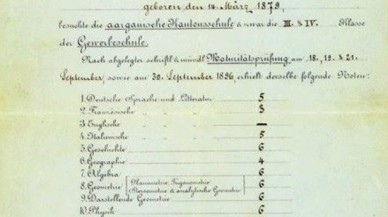 geboren den 14. März 1879,
besuchte die aargauische Kantonsschule & zwar die III. & IV. Klasse
der Gewerbeschule.
Nach abgelegter schriftl. & mündl. Maturitätsprüfung am 18., 19. & 21.
September, sowie am 30. September 1896, erhielt derselbe folgende Noten:
1. Deutsche Sprache und Litteratur 5
2. Französische 3
3. Englische —
4. Italienische 5
5. Geschichte 6
6. Geographie 4
7. Algebra 6
8. Geometrie Planimetrie, Trigonometrie Stereometrie & analytische Geometrie 6
9. Darstellende Geometrie 6
10. Physik 6